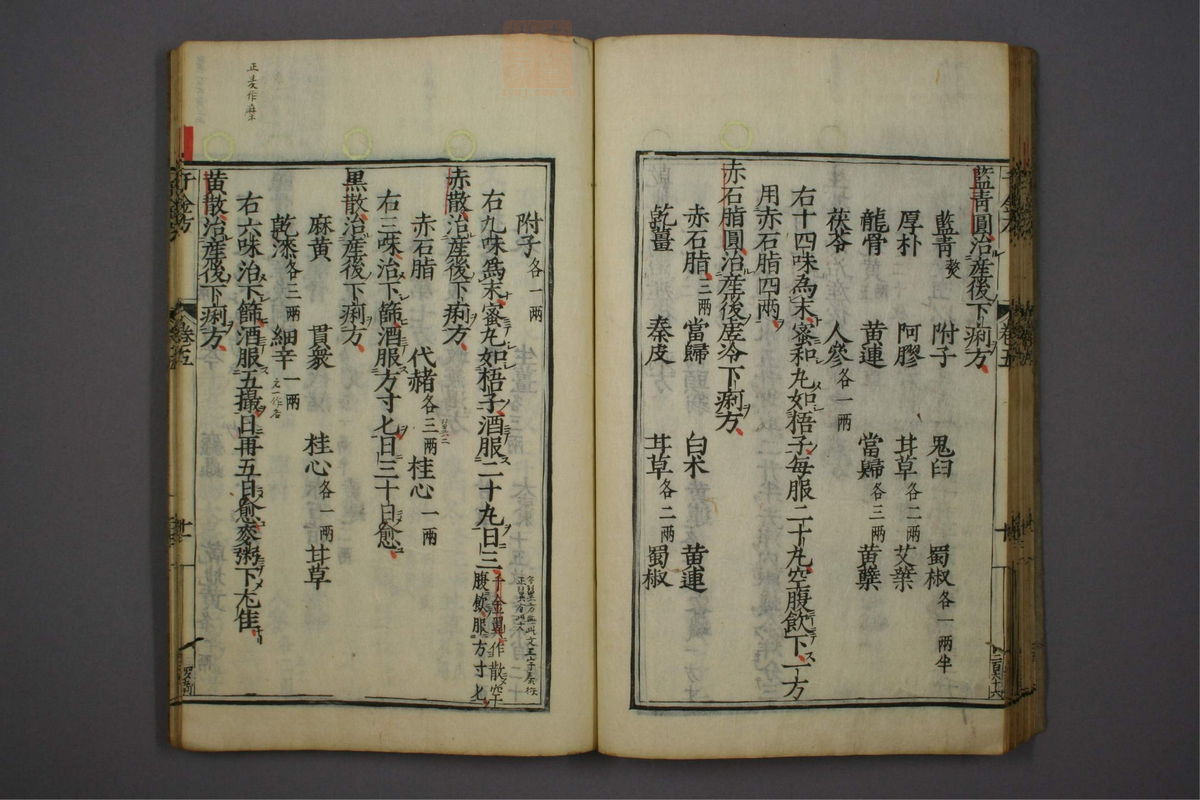 藍青圓治産後下痢方
藍青熬 附子 鬼臼 蜀椒各一兩半
厚朴 阿膠 甘草各二兩 艾葉
龍骨 黄連 當歸各三兩 黄蘗
茯苓 人參各一兩
右十四味為末蜜和丸如梧子每服二十丸空腹飲下一方
用赤石脂四兩
赤石脂圓治産後虚冷下痢方
赤石脂三兩 當歸 白术 黄連
乾薑 秦皮 甘草各二兩 蜀椒
附子各一兩
右九味為末蜜丸如梧子酒服二十丸日三千金翼作散空腹飲服方寸匕
赤散治産後下痢方
赤石脂 代赭各三兩 桂心一兩
右三味治下篩酒服方寸匕日三十日愈
黒散治産後下痢方
麻黄 貫衆 桂心各一兩 甘草
乾漆各三兩 細辛一兩
右六味治下篩酒服五撮日再五日愈麥粥下尤佳
黄散治産後下痢方
千金方 卷五
正麦作麻